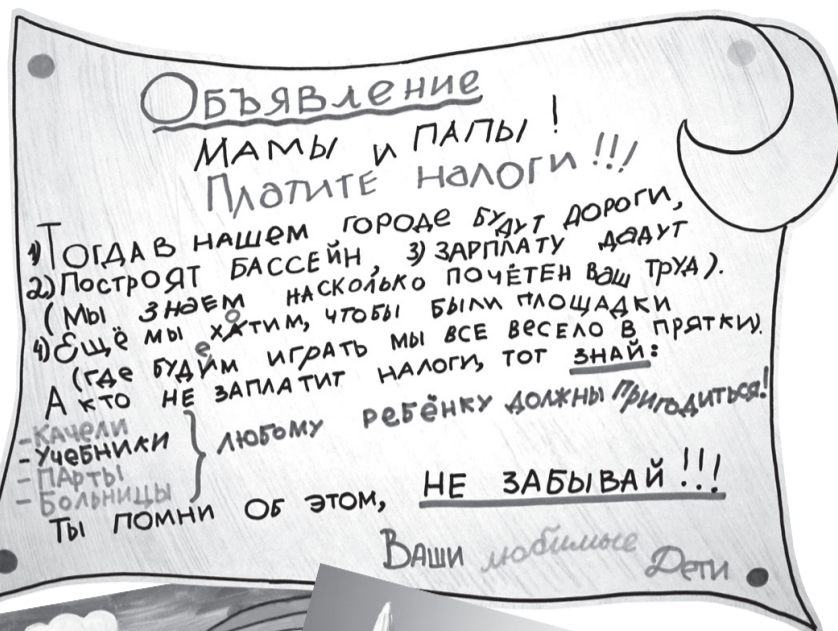 Объявление
Мамы и папы!
Платите налоги!!!
1) Тогда в нашем городе будут дороги,
2) Построят бассейн, 3) зарплату дадут
(Мы знаем насколько почётен ваш труд).
4) Ещё мы хотим, чтобы были площадки
(где будем играть мы все весело в прятки).
А кто не заплатит налоги, тот знай:
-Качели
-Учебники
-Парты
-Больницы
} любому ребёнку должны пригодиться!
Ты помни об этом, не забывай!!!
Ваши любимые Дети